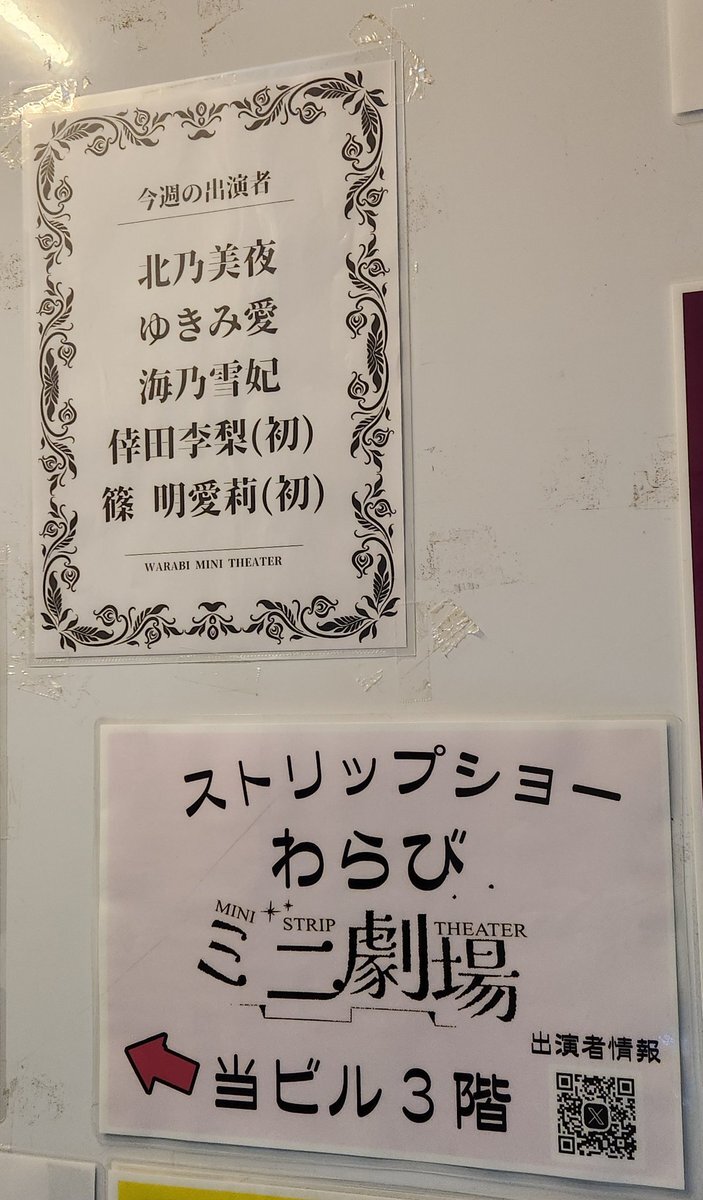 今週の出演者
北乃美夜
ゆきみ愛
海乃雪妃
倖田李梨(初)
篠 明愛莉(初)
WARABI MINI THEATER
ストリップショー
わらび
MINI STRIP THEATER
ミニ劇場
出演者情報
当ビル3階